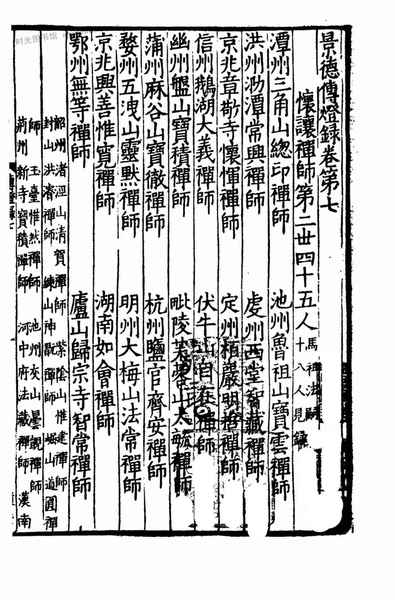 景德傳燈録卷第七
懷讓禪師第二世四十五人 馬祖法嗣
十八人見録
潭州三角山總印禪師 池州魯祖山寶雲禪師
洪州泐潭常興禪師 虔州西堂智藏禪師
京兆章敬寺懷惲禪師 定州栢巖明哲禪師
信州鵝湖大義禪師 伏牛山自在禪師
幽州盤山寶積禪師 毗陵芙蓉山太毓禪師
蒲州麻谷山寶徹禪師 杭州鹽官齊安禪師
婺州五洩山靈默禪師 明州大梅山法常禪師
京兆興善惟寬禪師 湖南如會禪師
鄂州無等禪師 廬山歸宗寺智常禪師
韶州渚涇山清賀禪師 紫陰山惟建禪師
封山洪濬禪師 練山神翫禪師 崛山道圓禪
師 玉臺惟然禪師 池州灰山曇覬禪師
荊州新寺寶積禪師 河中府法藏禪師 漢南